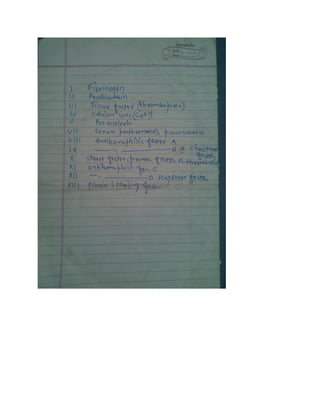 I Fibrinogen
II Prothrombin
III Tissue factor (thromboplasin)
IV calcium ions (Ca2+)
V Proaccelerin
VII Serum prothrombin, proconvertin
VIII antihemophilic factor A
IX —— ,, —— B = christmas factor
X stuart factor, prower factor
XI antihemophilic fa— C
XII —,, —— D Hageman factor
XIII fibrin stabilizing fact